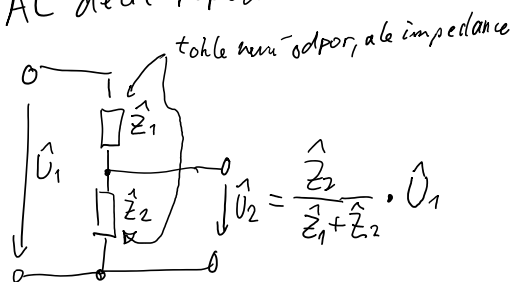 AC
tohle není odpor, ale impedance
Ẑ1
Û1
Ẑ2
Û2 = Ẑ2 / (Ẑ1 + Ẑ2) · Û1